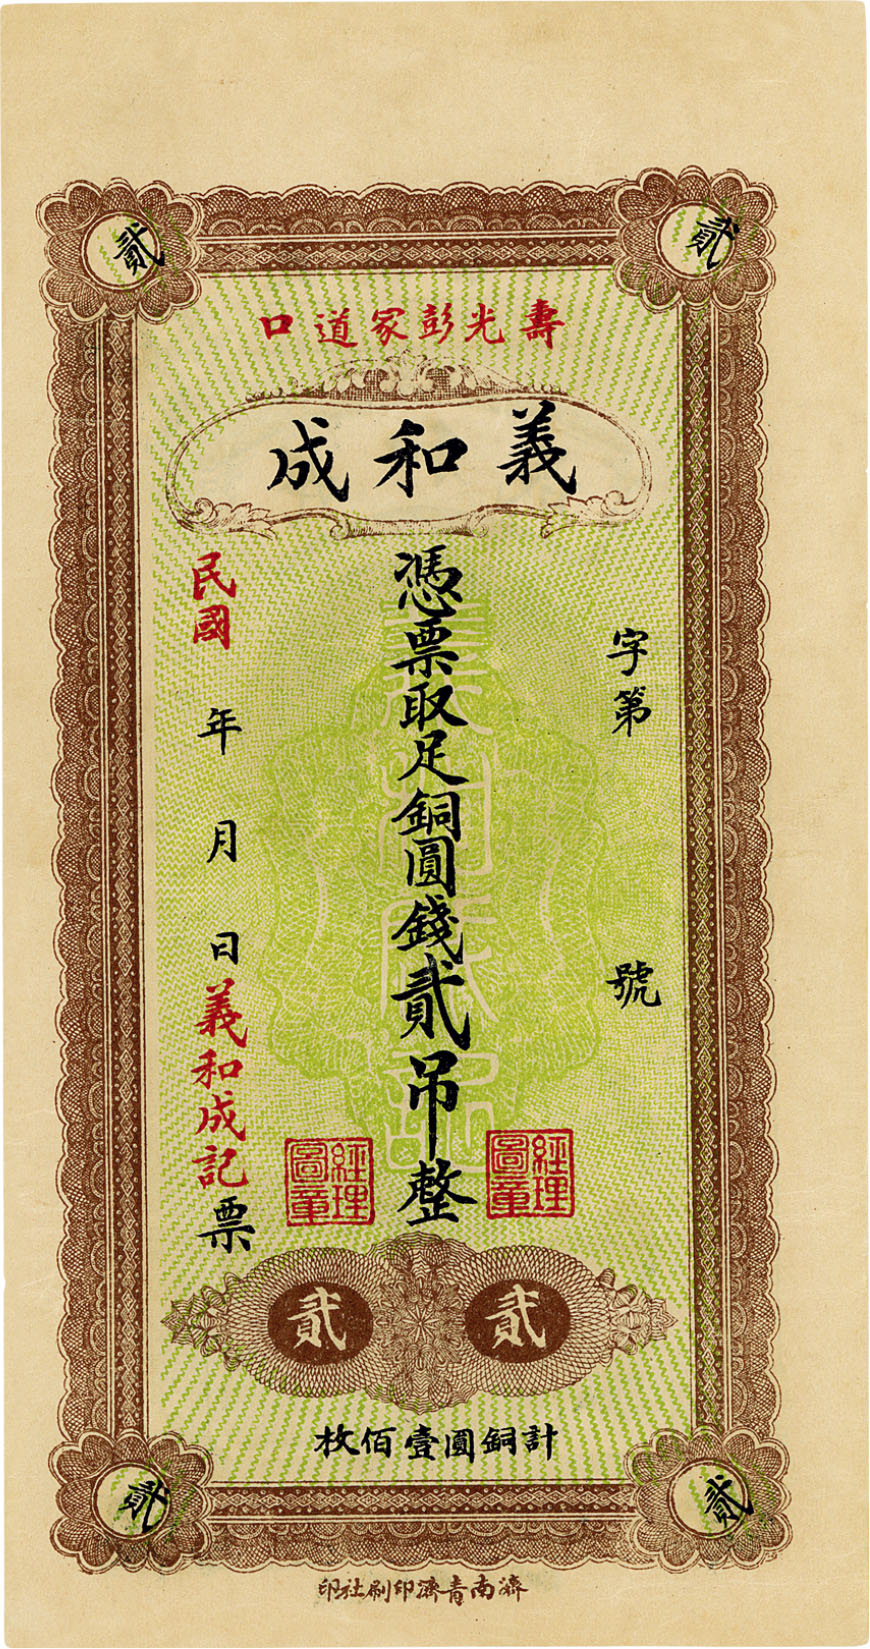 貳
貳
壽光彭家道口
義和成
字第 號
憑票取足銅圓錢貳吊整
民國 年 月 日義和成記票
義和成記
經理圖章
經理圖章
貳
貳
計銅圓壹佰枚
貳
貳
濟南青濟印刷社印